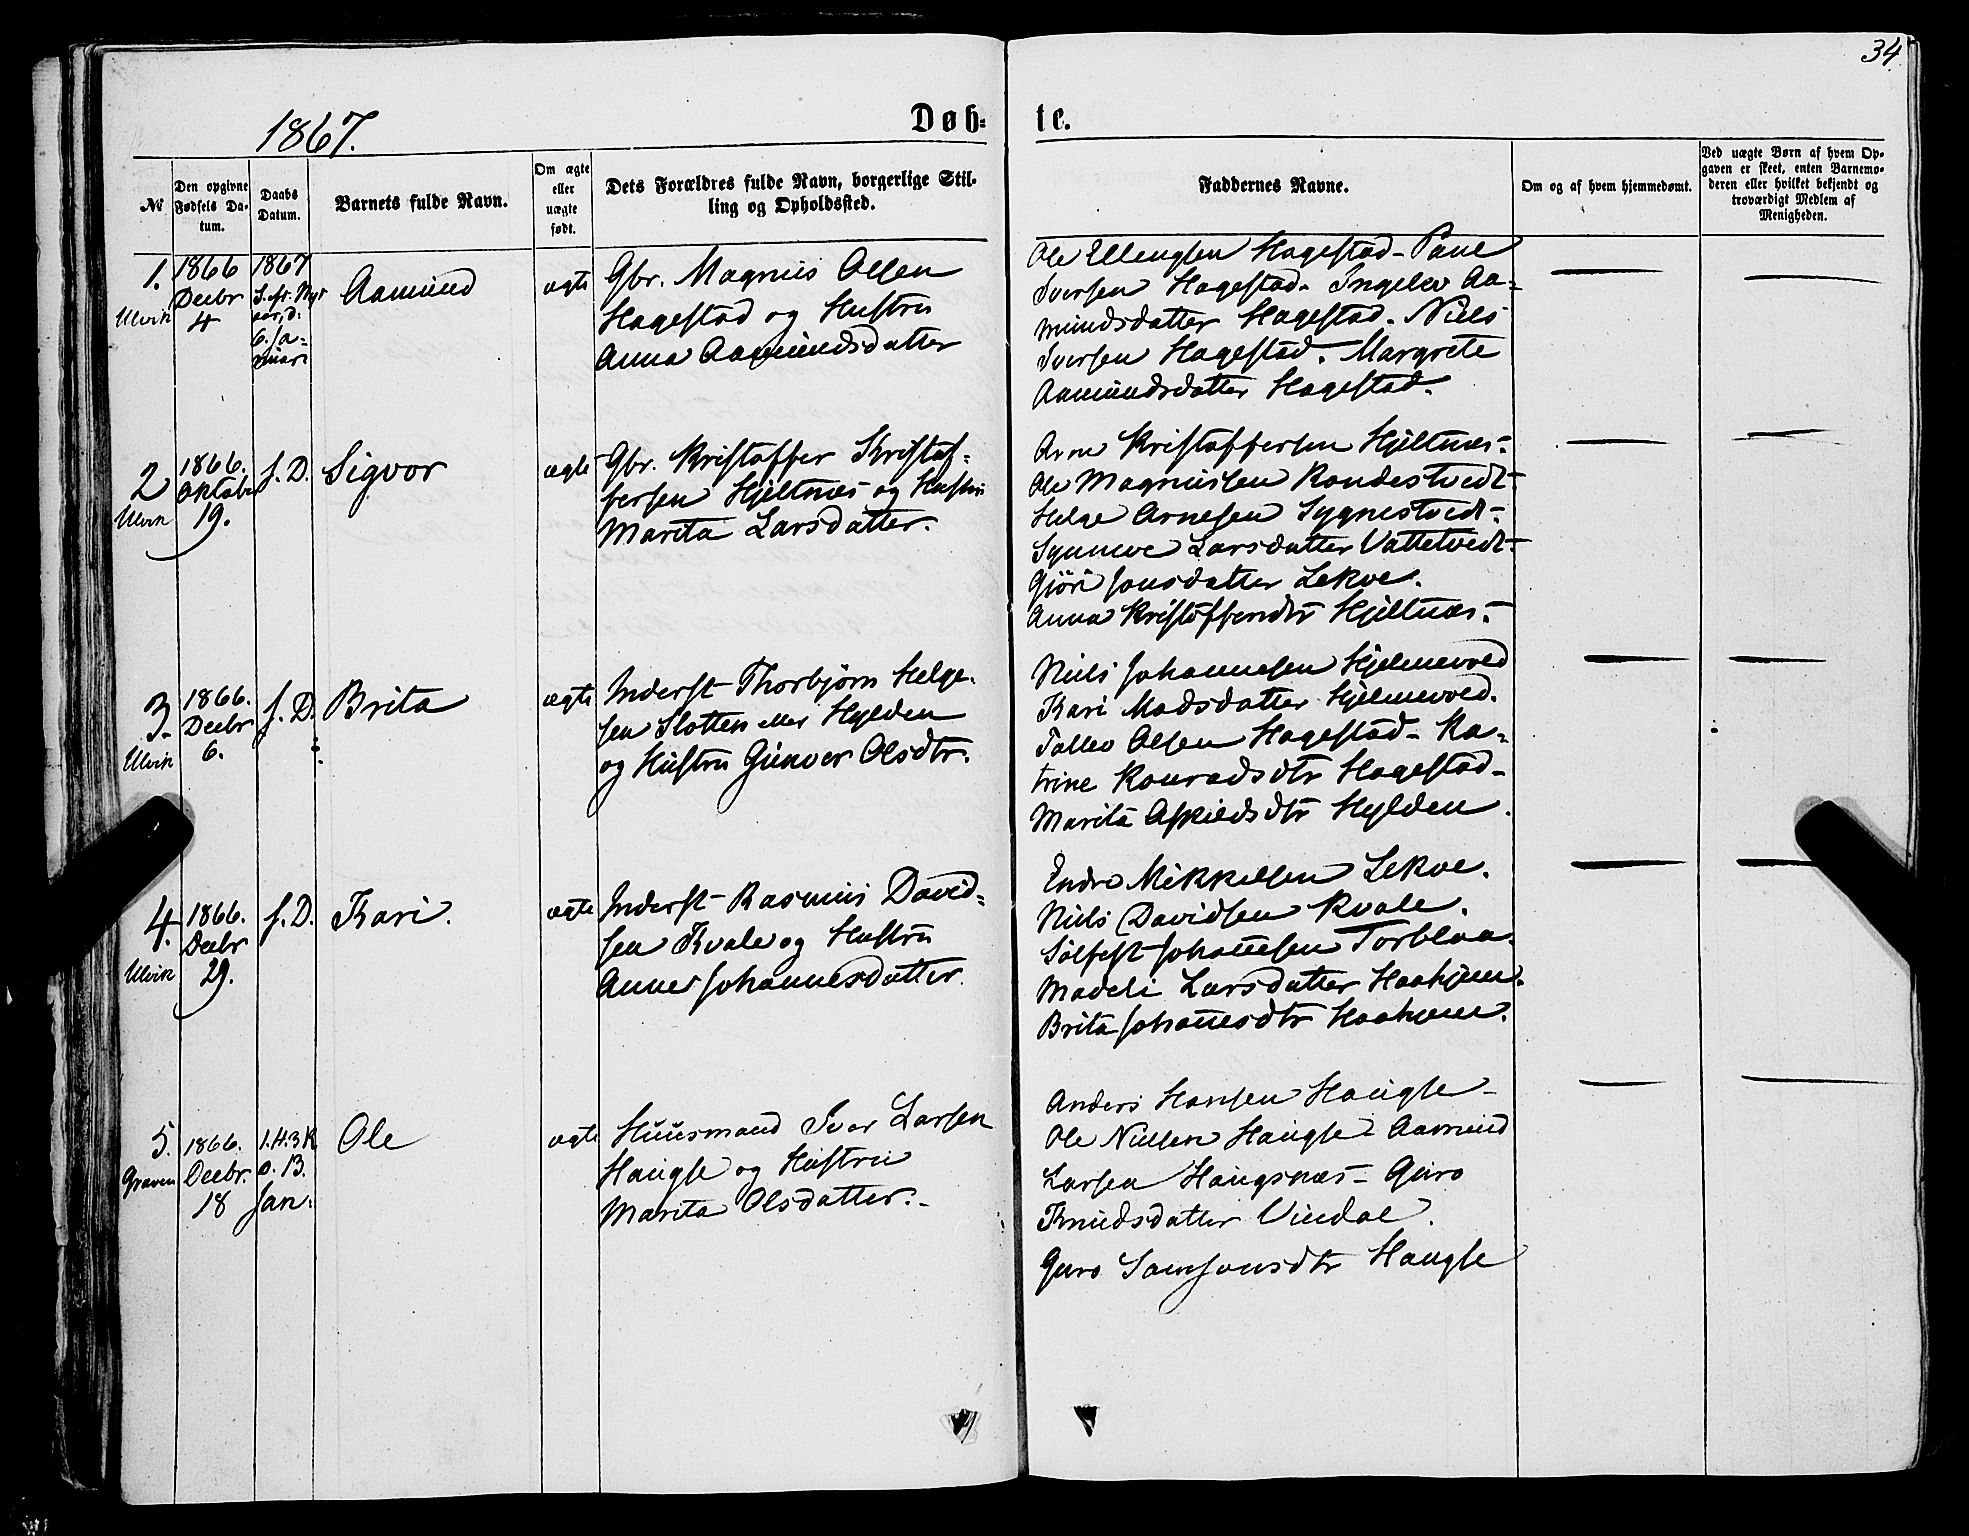 34
1867.
Døb- te.
No
Den opgivne Fødsels Datum.
Daabs Datum.
Barnets fulde Navn.
Om ægte eller uægte født.
Dets Forældres fulde Navn, borgerlige Stilling og Opholdssted.
Faddernes Navne.
Om og af hvem hjemmedømt.
Ved uægte Børn af hvem Opgaven er skeet, enten Barnemoderen eller hvilket bekjendt og troværdigt Medlem af Menigheden.
1.
Ulvik
1866
Decbr
4
1867
S. eft. Nyt
aar, d.
6. Ja-
nuar.
Aamund
ægte
Gbr. Magnus Olsen
Hagestad og Hustru
Anna Aamundsdatter
Ole Ellengsen Hagestad - Paul
Iversen Hagestad. Ingelev Aa-
mundsdatter Hagestad. Niels
Iversen Hagestad. Margrete
Aamundsdatter Hagestad.
2
Ulvik
1866.
Oktober
19.
s. D.
Sigvor
ægte
Gbr. Kristoffer Kristof-
fersen Hjeltnæs og Hustru
Marita Larsdatter.
Arne Kristoffersen Hjeltnæs.
Ole Magnussen Rondestvedt
Helge Arnesen Sygnestvedt.
Synneve Larsdatter Vattetvedt
Gjøri Jonsdatter Lekve.
Anna Kristoffersdtr Hjeltnæs.
3.
Ulvik
1866.
Decbr
6.
s. D.
Brita
ægte
Inderst Thorbjørn Helge-
sen Slotten eller Hylden
og Hustru Gunvor Olsdtr.
Niels Johannesen Hjelmevold
Kari Madsdatter Hjelmevold.
Tollev Olsen Hagestad - Ka-
trine Konradsdtr Hagestad -
Marita Askildsdtr Hylden.
4.
Ulvik
1866.
Decbr
29.
s. D.
Kari.
ægte
Inderst Rasmus David-
sen Kvale og Hustru
Anna Johannesdatter.
Endre Mikkelsen Lekve.
Niels Davidsen Kvale.
Sølfest Johannesen Torblaa.
Madeli Larsdatter Haahjem.
Brita Johannesdtr Haahjem.
5.
Graven
1866.
Decbr.
18
1.H.3K
o. B.
Jan.
Ole
ægte
Huusmand Ivar Larsen
Haugse og Hustru
Marita Olsdatter.
Anders Hansen Haugse -
Ole Nielsen Haugse - Aamund
Larsen Haugsnæs - Guro
Knudsdatter Vindal.
Guro Samsonsdtr Haugse